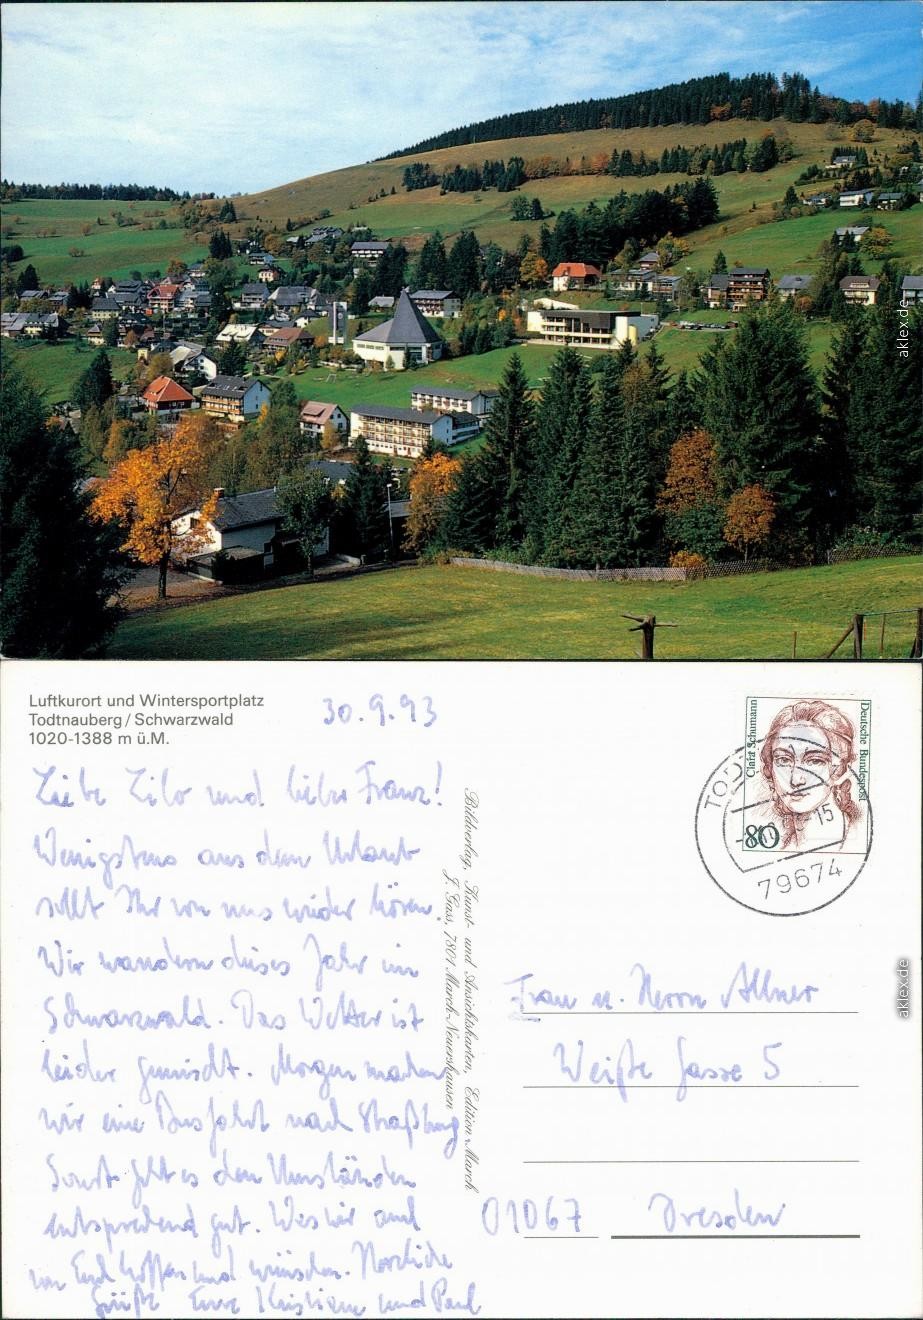 Luftkurort und Wintersportplatz
Todtnauberg / Schwarzwald
1020-1388 m ü.M.
30.9.93
Liebe Lilo und lieber Franz!
Wenigstens aus dem Urlaub
sollt Ihr von uns wieder hören.
Wir wandern dieses Jahr im
Schwarzwald. Das Wetter ist
leider gemischt. Morgen machen
wir eine Busfahrt nach Straßburg
Sonst geht es den Umständen
entsprechend gut. Was wir auch
von Euch hoffen und wünschen. Herzliche
Grüße Eure Kristiane und Paul
Bildverlag, Kunst- und Ansichtskarten, Edition March
J. Gass, 7801 March-Neuershausen
Clara Schumann
Deutsche Bundespost
80
TODT
-15
79674
Frau u. Herrn Allner
Weiße Gasse 5
01067 Dresden
aklex.de
aklex.de